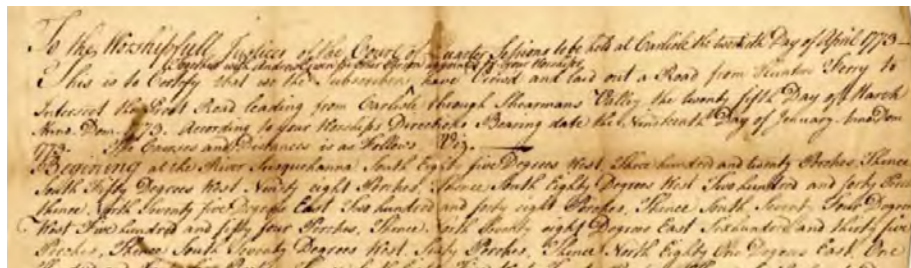 To the Worshipfull Justices of the Court of Quarter Sessions to be held at Carlisle the twentieth Day of April 1773—
Together with Anderson for other Persons appointed by your Worships
This is to Certify that we the Subscribers have Viewed and laid out a Road from Ferry to
Intersect the Great Road leading from Carlisle through Shearmans Valley the twenty fifth Day of March
Anno Dom. 1773. According to your Worships Directions Bearing date the Nineteenth Day of January Anno Dom
1773. The Courses and Distances is as Follows Viz.
Begining at the River Susquehanna South Eight five Degrees West, three hundred and twenty Perches, Thence
South Fifty Degrees West Ninety eight Perches, Thence South Eighty Degrees West Two hundred and forty
thence North Seventy five Degrees East Two hundred and forty eight Perches, Thence South Seventy Four Degrees
West Five hundred and fifty four Perches, Thence North Seventy eight Degrees East Six hundred and thirty five
Perches, Thence South Seventy Degrees West. Sixty Perches, Thence North Eighty One Degrees East, One